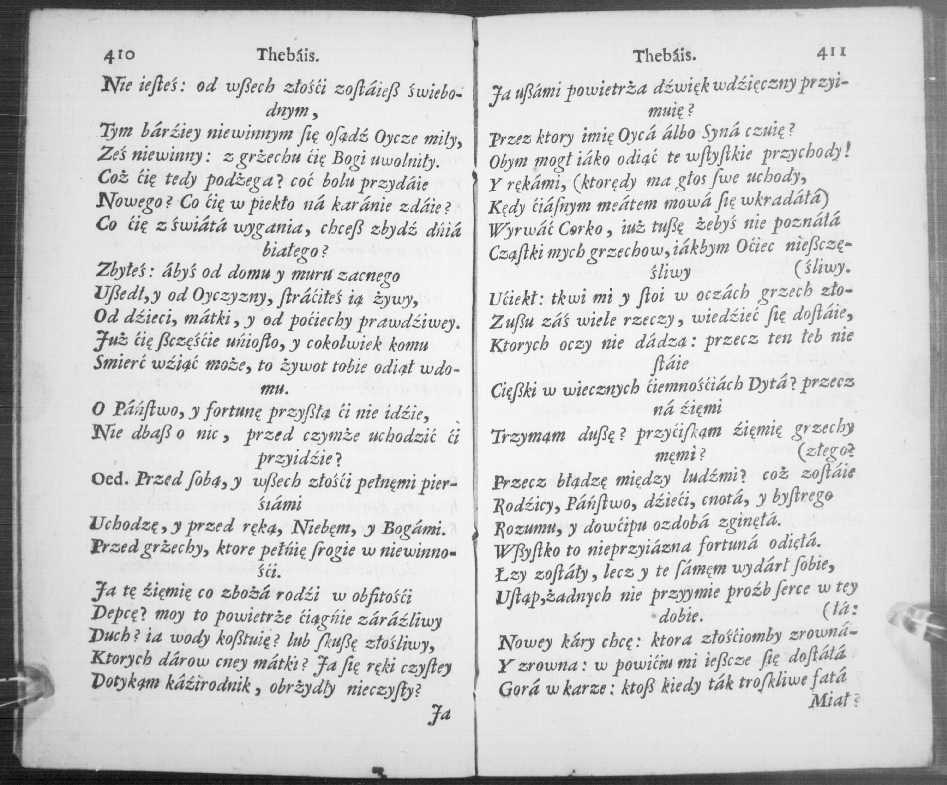 410 Thebáis.
Nie iesteś: od wßech złośći zostáieß świebo-
dnym,
Tym bárźiey niewinnym się osądź Oycze miły,
Ześ niewinny: z grżechu ćię Bogi uwolniły.
Coż ćię tedy podżega? coć bolu przydáie
Nowego? Co ćię w piekło ná karánie zdáie?
Co ćię z świátá wygania, chceß zbydź dńiá
białego?
Zbyłeś: ábyś od domu y muru zacnego
Ußedł, y od Oyczyzny, stráćiłeś ią żywy,
Od dźieci, mátki, y od poćiechy prawdźiwey.
Już ćię ßczęśćie uńiosło, y cokolwiek komu
Smierć wźiąć może, to żywot tobie odiął wdo-
mu.
O Páństwo, y fortunę przyßłą ći nie idźie,
Nie dbaß o nic, przed czymże uchodzić ći
przyidźie?
Oed. Przed sobą, y wßech złośći pełnęmi pier-
śiámi
Uchodzę, y przed ręką, Niebęm, y Bogámi.
Przed grżechy, ktore pełńię srogie w niewinno-
śći.
Ja tę źięmię co zbożá rodźi w obfitośći
Depcę? moy to powietrże ćiągńie záráźliwy
Duch? ia wody koßtuię? lub skußę złośliwy,
Ktorych dárow cney mátki? Ja się ręki czystey
Dotykąm káźirodnik, obrżydły nieczysty?
Ja
Thebáis. 411
Ja ußámi powietrża dźwięk wdźięczny przyi-
muię?
Przez ktory imię Oycá álbo Syná czuię?
Obym mogł iáko odiąć te wstystkie przychody!
Y rękámi, (ktorędy ma głos swe uchody,
Kędy ćiásnym meátem mowá się wkradáłá)
Wyrwáć Corko, iuż tußę żebyś nie poználá
Cząstki mych grzechow, iákbym Oćiec nießczę-
śliwy (śliwy.
Ućiekł: tkwi mi y stoi w oczách grzech zło-
Zußu záś wiele rzeczy, wiedźieć się dostáie,
Ktorych oczy nie dádzą: przecz ten łeb nie
stáie
Cięßki w wiecznych ćiemnośćiách Dytá? przecz
ná źięmi
Trzymąm dußę? przyćiskąm źięmię grzechy
męmi? (złego?
Przecz błądzę między ludźmi? coż zostáie
Rodźicy, Páństwo, dźieći, cnotá, y bystrego
Rozumu, y dowćipu ozdobá zginęłá.
Wßystko to nieprzyiázna fortuná odięłá.
Łzy zostáły, lecz y te sámęm wydárł sobie,
Ustąp, żadnych nie przyymie proźb serce w tey
dobie. (łá:
Nowey káry chcę: ktora złośćiomby zrowná-
Y zrowna: w powićiu mi ießcze się dostáłá
Gorá w karze: ktoß kiedy ták troskliwe fatá
Miał?